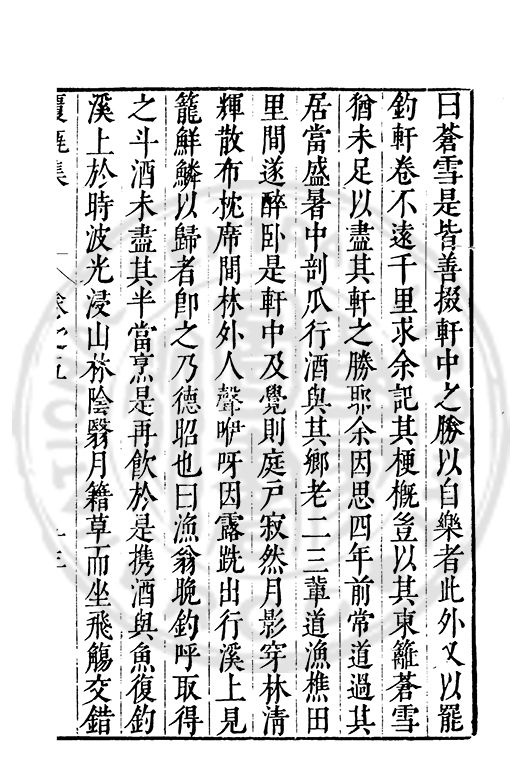 曰蒼雪是皆善掇軒中之勝以自樂者此外又以罷
釣軒卷不遠千里求余記其梗槪豈以其東籬蒼雪
猶未足以盡其軒之勝耶余因思四年前常道過其
居當盛暑中剖瓜行酒與其鄉老二三輩道漁樵田
里間遂醉卧是軒中及覺則庭戶寂然月影穿林清
輝散布枕席間林外人聲咿呀因露跣出行溪上見
籠鮮鱗以歸者卽之乃德昭也曰漁翁晚釣呼取得
之斗酒未盡其半當烹是再飮於是携酒與魚復釣
溪上於時波光浸山林陰翳月籍草而坐飛觴交錯